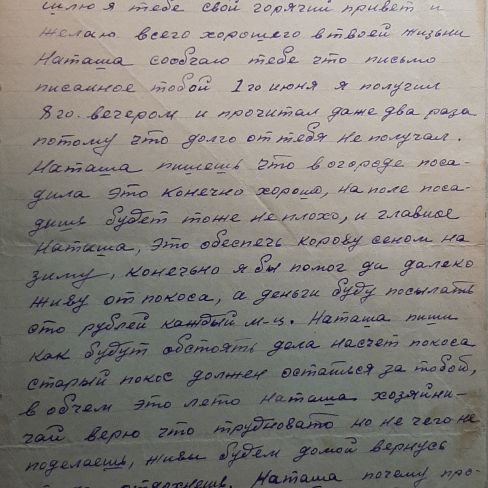 шлю я тебе свой горячий привет и
желаю всего хорошего в твоей жизьни
Наташа сообчаю тебе что письмо
писанное тобой 1го июня я получил
8го. вечером и прочитал даже два раза
потому что долго от тебя не получал.
Наташа пишешь что в огороде поса-
дила это конечно хорошо, на поле поса-
дишь будет тоже не плохо, и главное
Наташа, это обеспечь корову сеном на
зиму, конечьно я бы помог да далеко
живу от покоса, а деньги буду посылать
сто рублей каждый м-ц. Наташа пиши
как будут обстоять дела насчет покоса
старый покос должен остаться за тобой,
в обчем это лето Наташа хозяйни-
чай верю что трудновато но не чего не
поделаешь, живы будем домой вернусь
отдохнешь. Наташа почему про-